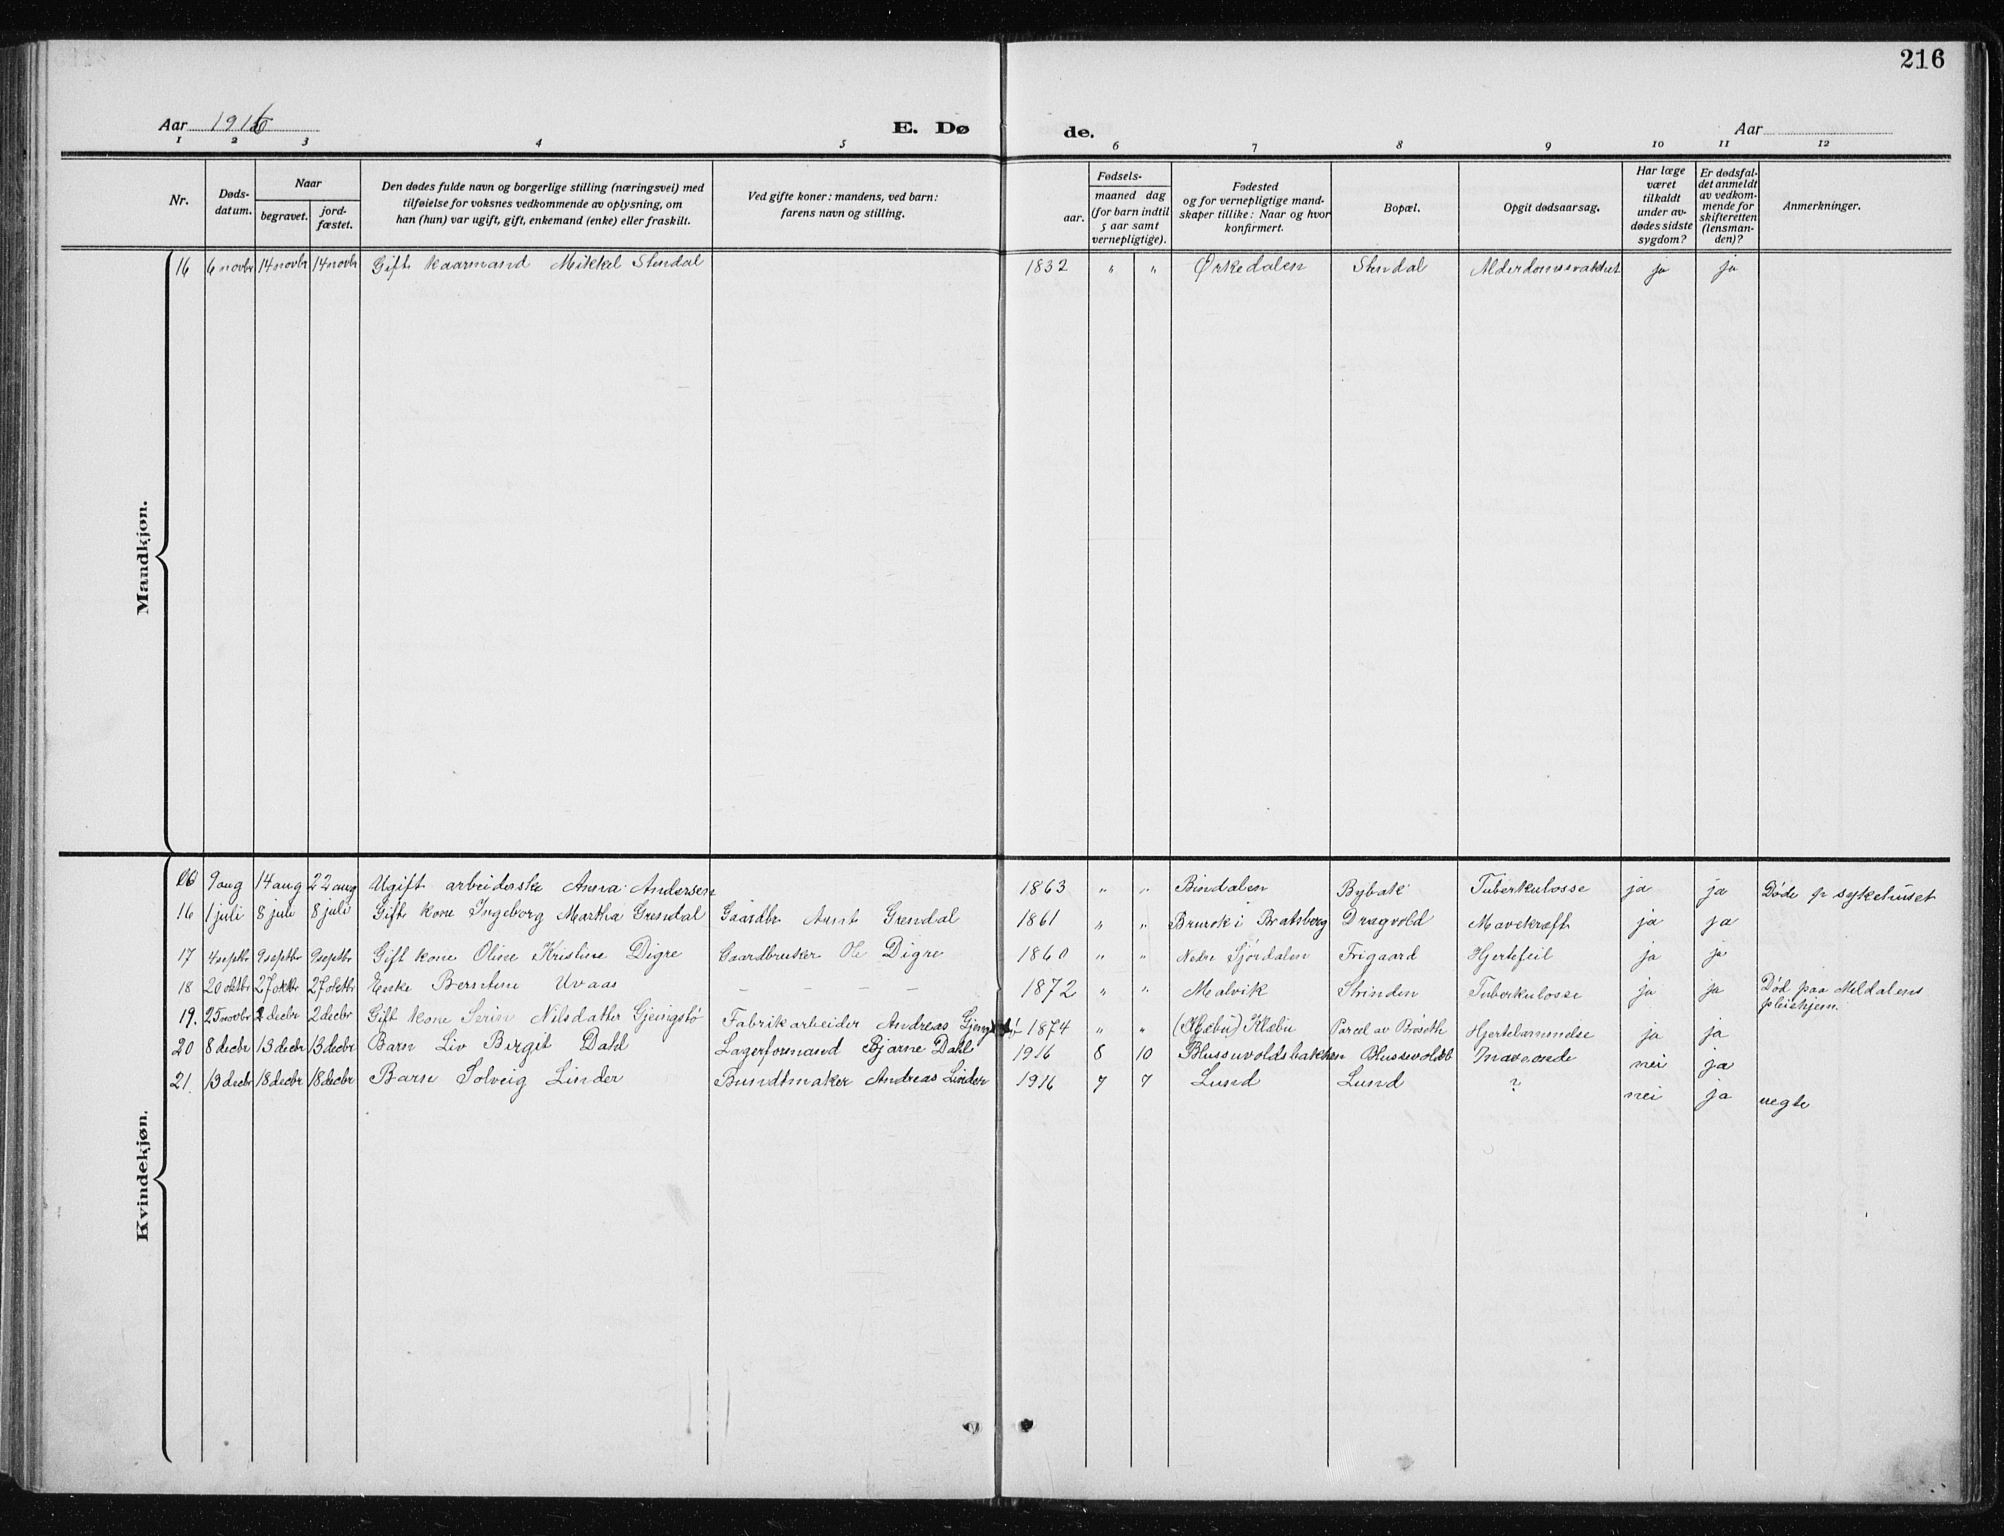 216
Aar 1916 E. Dø de. Aar
1 2 3 4 5 6 7 8 9 10 11 12
Nr. Døds-datum. Naar begravet. jord-fæstet. Den dødes fulde navn og borgerlige stilling (næringsvei) med tilføielse for voksnes vedkommende av oplysning, om han (hun) var ugift, gift, enkemand (enke) eller fraskilt. Ved gifte koner: mandens, ved barn: farens navn og stilling. Fødsels- aar. maaned dag (for barn indtil 5 aar samt vernepligtige). Fødested og for vernepligtige mand-skaper tillike: Naar og hvor konfirmert. Bopæl. Opgit dødsaarsag. Har læge været tilkaldt under av-dødes sidste sygdom? Er dødsfal-det anmeldt av vedkom-mende for skifteretten (lensman-den)? Anmerkninger.
Mandkjøn.
16 6 novbr 14 novbr 14 novbr Gift kaarmand Mikkel Stendal 1832 " " Ørkedalen Stendal Alderdomssvakhet ja ja
Kvindekjøn.
9 aug 14 aug 22 aug Ugift arbeiderske Anna Andersen 1863 " " Bindalen Bybak Tuberkulosse ja ja Døde p sykehuset
16 1 juli 8 juli 8 juli Gift kone Ingeborg Martha Grendal Gaardbr Arnt Grendal 1861 " " Brurok i Bratsberg Dragvold Mavekræft ja ja
17 4 septbr 9 septbr 9 septbr Gift kone Oline Kristine Digre Gaardbruker Ole Digre 1860 " " Nedre Sjørdalen Frigaard Hjertefeil ja ja
18 20 oktbr 27 oktbr 27 oktbr Enke Berntine Uvaas – – – – 1872 " " Malvik Strinden Tuberkulosse ja ja Død paa Meldalens pleiehjem.
19. 25 novbr 2 decbr 2 decbr Gift kone Serin Nilsdatter Gjengstø Fabrikarbeider Andreas 1874 " " (Klæbu) Klæbu Parcel av Hjertelammelse ja ja
20 8 decbr 13 decbr 13 decbr Barn Liv Birgit Dahl Lagerformand Bjarne Dahl 1916 8 10 Blussuvoldsbakken Blussevoldsb nei ja
21. 13 decbr 18 decbr 18 decbr Barn Solveig Linder Bundtmaker Andreas Linder 1916 7 7 Lund Lund ? nei ja uegte